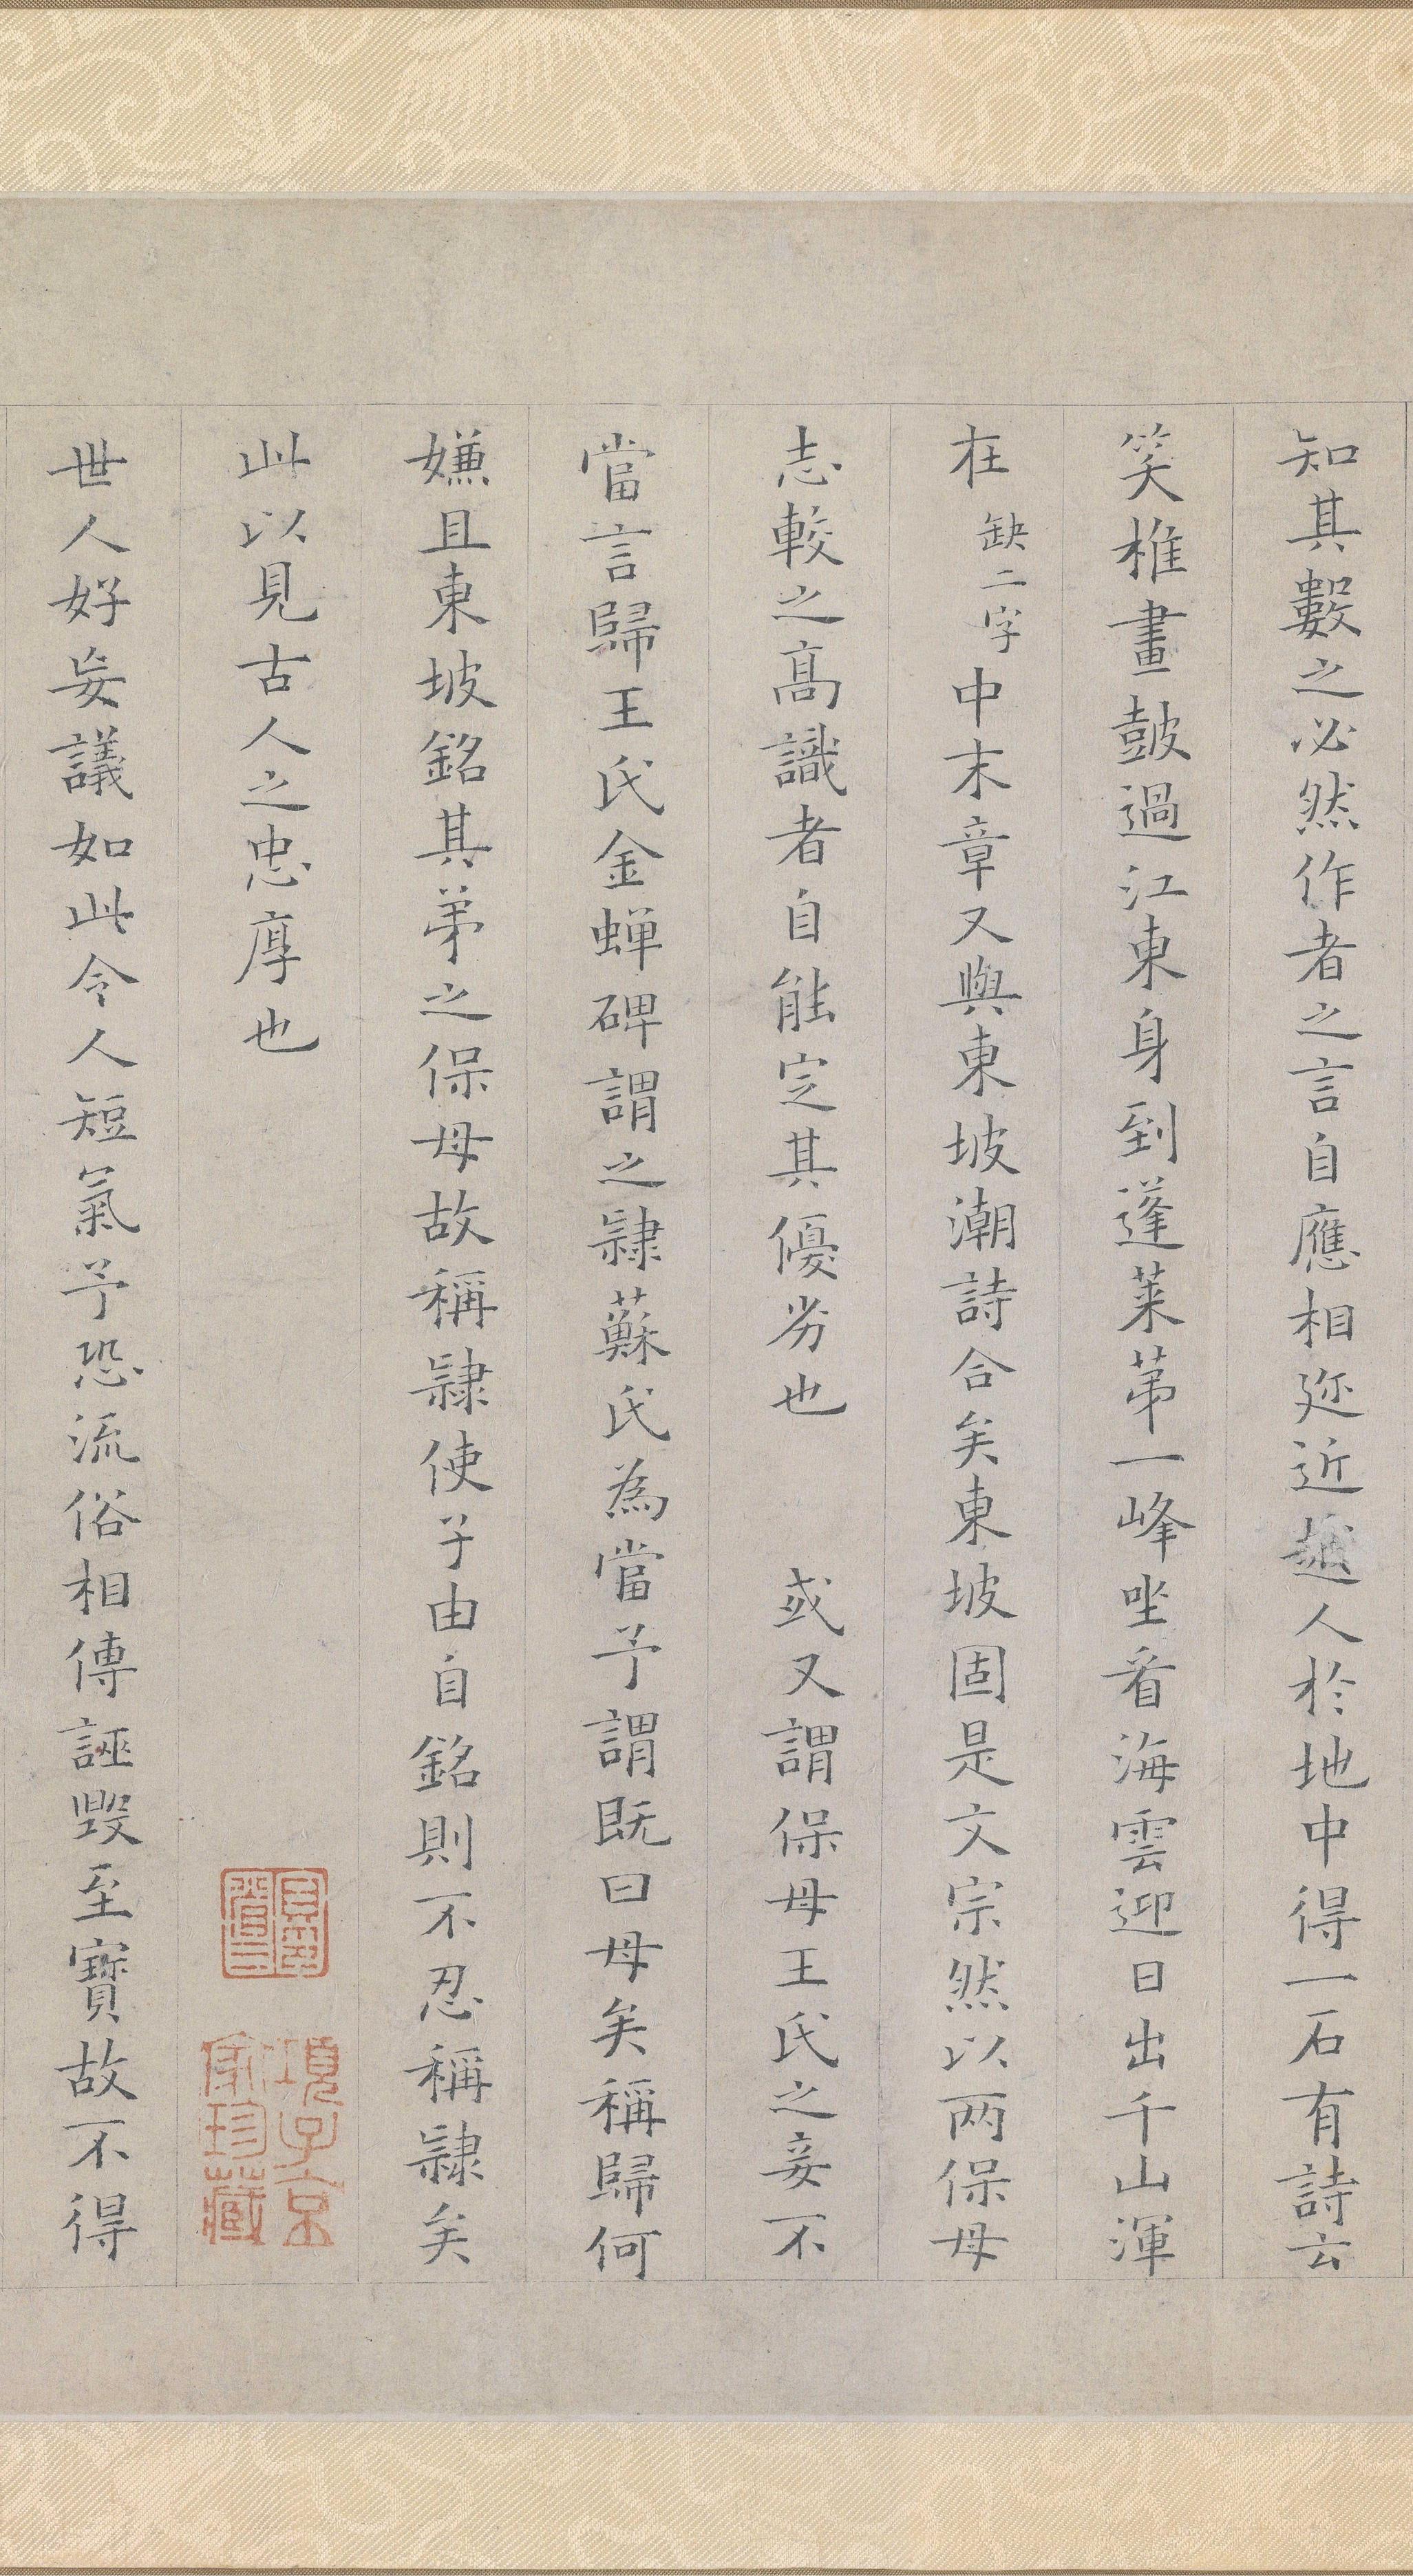 知其數之必然作者之言自應相近近越人於地中得一石有詩云
笑椎畫鼓過江東身到蓬萊苐一峰坐看海雲迎日出千山渾
在缺二字中末章又與東坡潮詩合矣東坡固是文宗然以两保母
志較之高識者自能定其優劣也 或又謂保母王氏之妾不
當言歸王氏金蟬碑謂之隸蘇氏為當予謂既曰母矣稱歸何
嫌且東坡銘其弟之保母故稱隸使子由自銘則不忍稱隸矣
此以見古人之忠厚也
世人好妄議如此令人短氣予恐流俗相傳誣毀至寶故不得
項子京
家珍藏